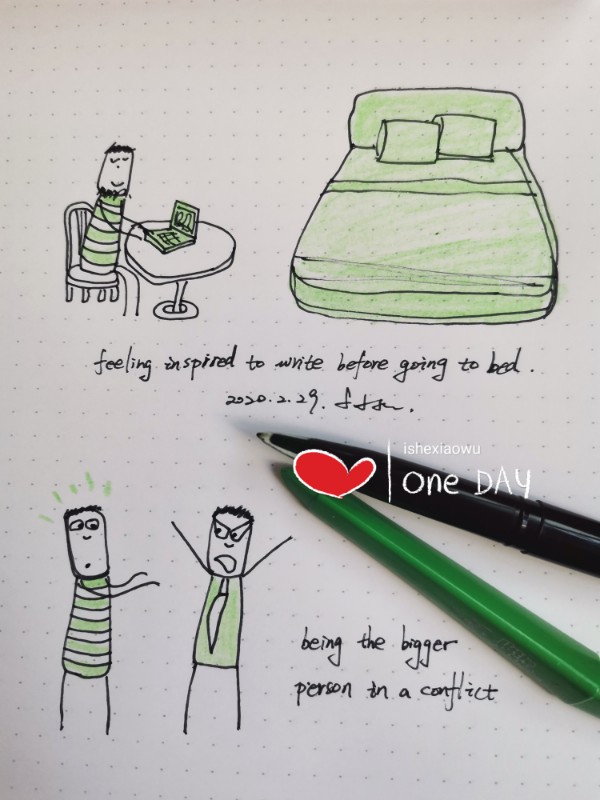 feeling inspired to write before going to bed.
2020.2.29.
ishexiaowu
one DAY
being the bigger
person in a conflict